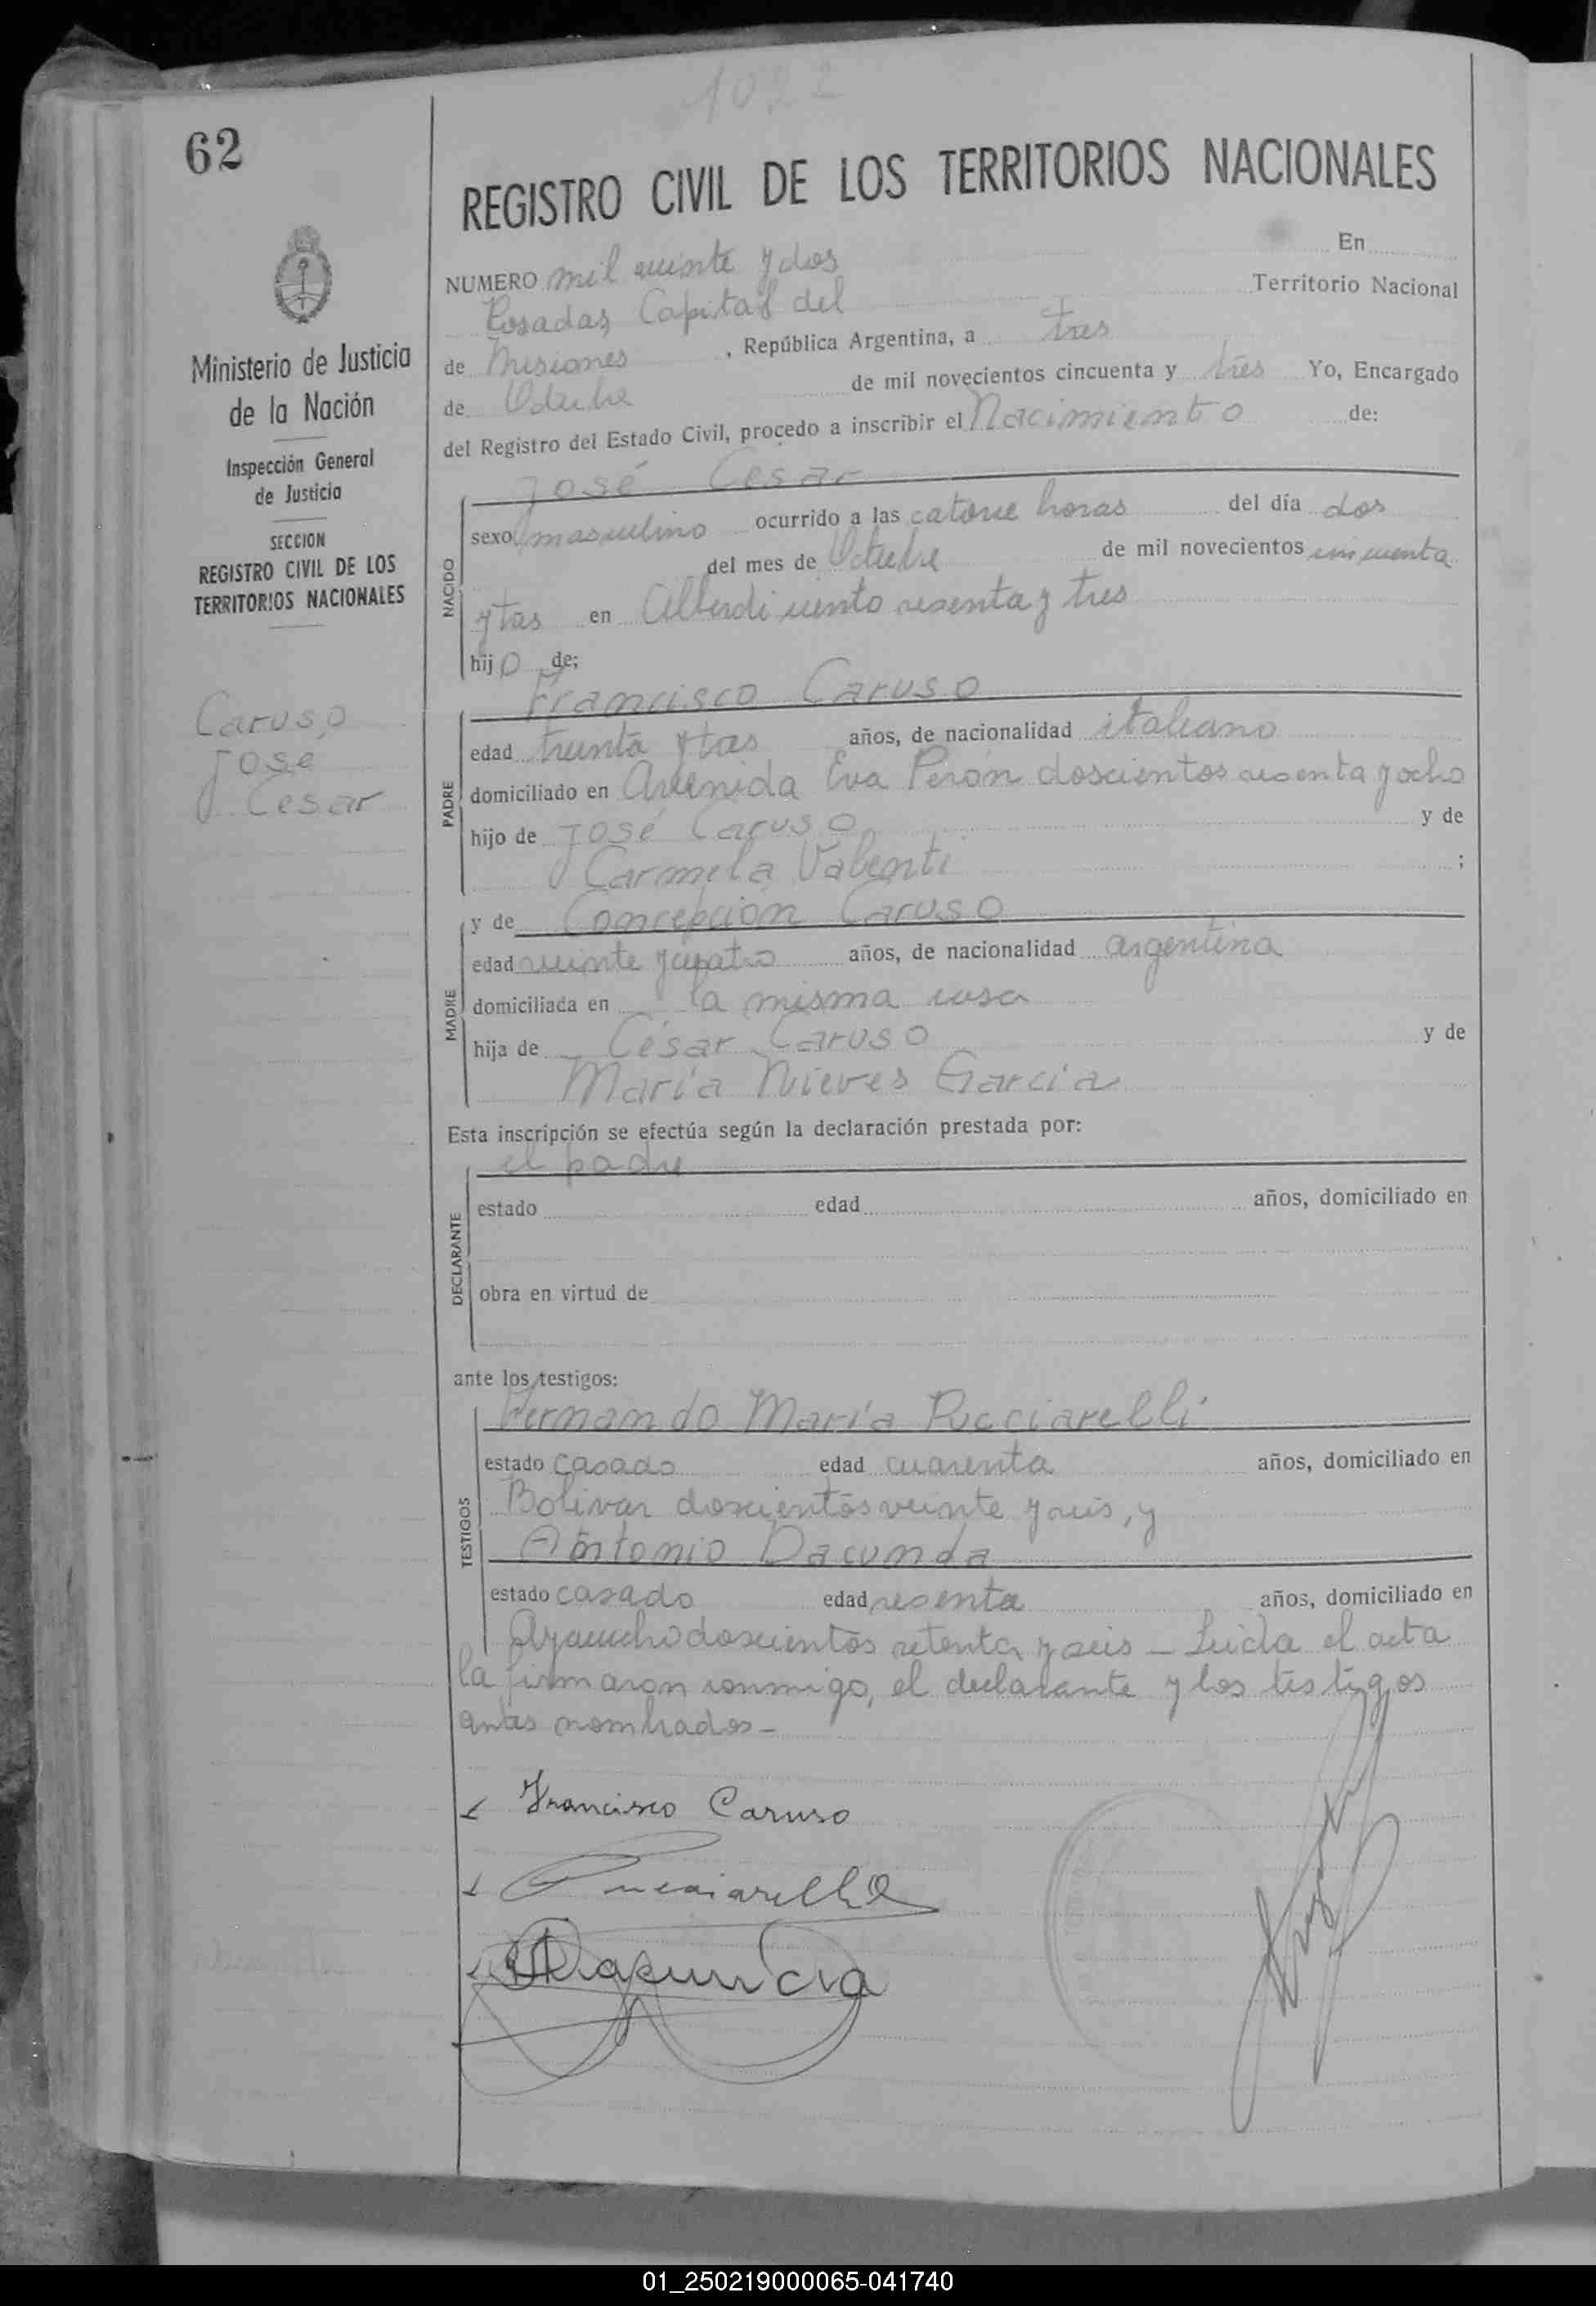 1022
62
REGISTRO CIVIL DE LOS TERRITORIOS NACIONALES
NUMERO mil veinte y dos En
Posadas, Capital del Territorio Nacional
de Misiones, República Argentina, a tres
de Octubre de mil novecientos cincuenta y tres Yo, Encargado
del Registro del Estado Civil, procedo a inscribir el Nacimiento de:
Ministerio de Justicia
de la Nación
Inspección General
de Justicia
SECCION
REGISTRO CIVIL DE LOS
TERRITORIOS NACIONALES
Caruso,
José
Cesar
NACIDO
José Cesar
sexo masculino ocurrido a las catorce horas del día dos
del mes de Octubre de mil novecientos cincuenta
y tres en Alberdi ciento sesenta y tres
hijo de;
PADRE
Francisco Caruso
edad treinta y tres años, de nacionalidad italiano
domiciliado en Avenida Eva Perón doscientos sesenta y ocho
hijo de José Caruso y de
Carmela Valenti ;
MADRE
y de Concepción Caruso
edad veinte y cuatro años, de nacionalidad argentina
domiciliada en la misma casa
hija de César Caruso y de
María Nieves Garcia
Esta inscripción se efectúa según la declaración prestada por:
DECLARANTE
el padre
estado edad años, domiciliado en
obra en virtud de
ante los testigos:
TESTIGOS
Hernando María Pucciarelli
estado casado edad cuarenta años, domiciliado en
Bolivar doscientos veinte y seis, y
Antonio Dacunda
estado casado edad sesenta años, domiciliado en
Ayacucho doscientos setenta y seis – Leida el acta
la firmaron conmigo, el declarante y los testigos
antes nombrados –
Francisco Caruso
Pucciarelli
01_250219000065-041740